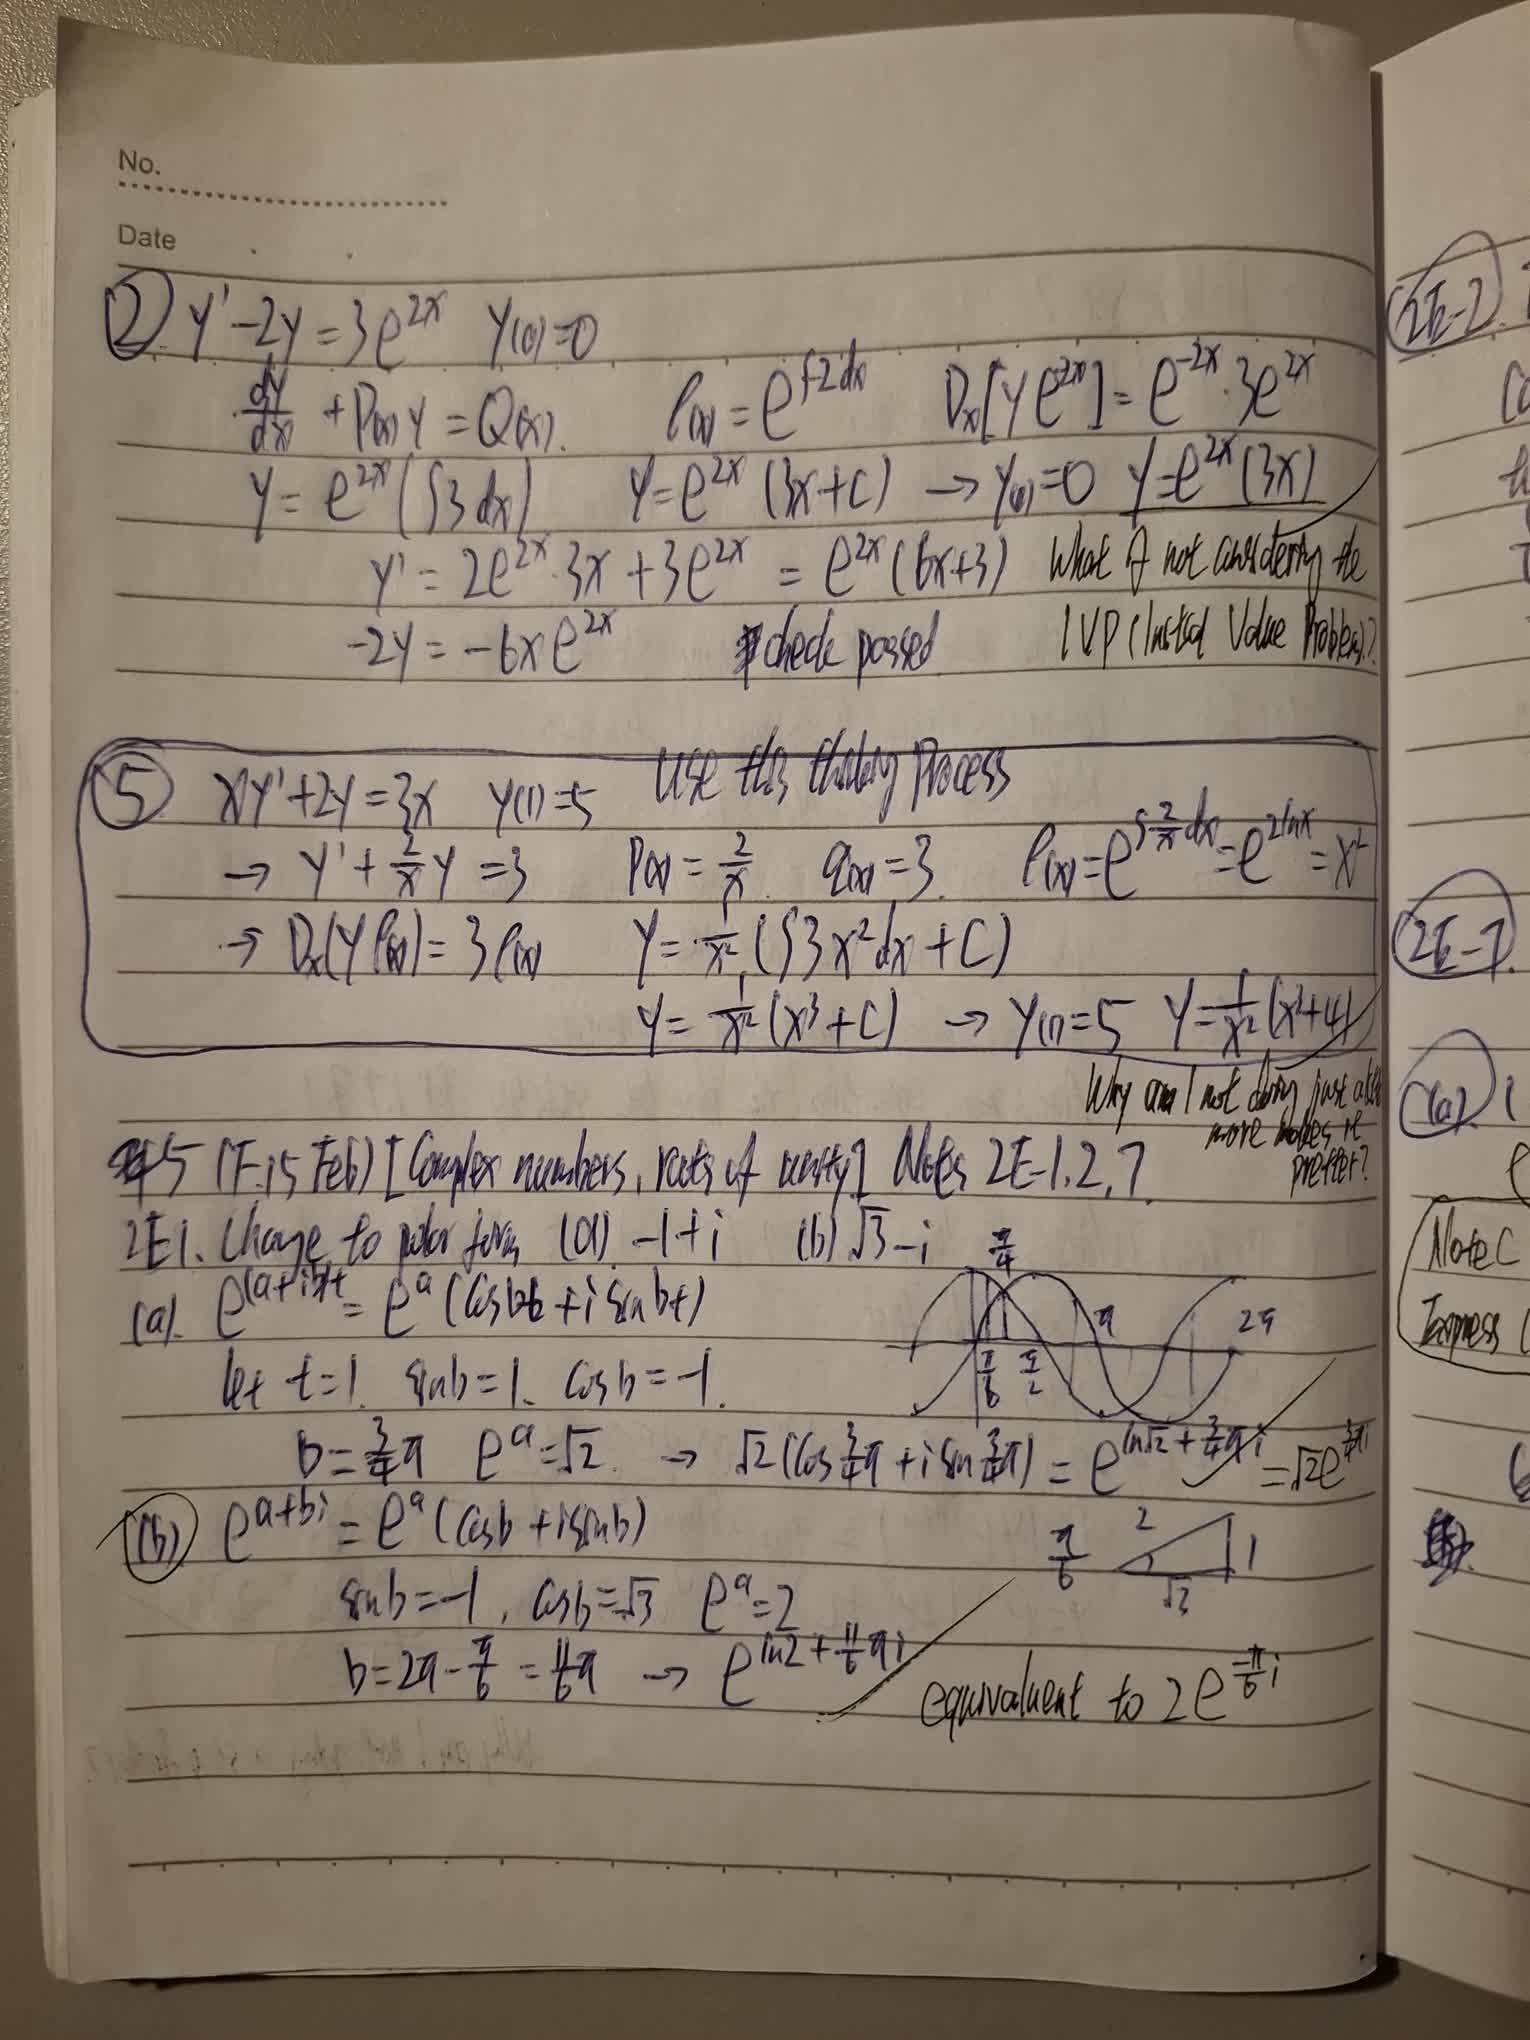 No.
Date
② y'-2y=3e^{2x} y(0)=0
dy/dx + P(x)y = Q(x). ρ(x) = e^{∫-2dx} Dx[ye^{-2x}] = e^{-2x}·3e^{2x}
y = e^{2x}(∫3dx) y=e^{2x}(3x+C) → y(0)=0 y=e^{2x}(3x)
y' = 2e^{2x}·3x+3e^{2x} = e^{2x}(6x+3) What if not considering the
-2y = -6xe^{2x} check passed IVP (Initial Value Problem)?
⑤ xy'+2y=3x y(1)=5 Use this thinking process
→ y' + 2/x y = 3 P(x) = 2/x. q(x)=3. ρ(x)=e^{∫2/x dx}=e^{2lnx}=x²
→ Dx(yρ(x)) = 3ρ(x) y = 1/x² (∫3x²dx + C)
y = 1/x² (x³+C) → y(1)=5 y=1/x² (x³+4)
Why am I not doing just
more
prettier?
(F.15 Feb) [Complex numbers, roots of unity] Notes 2E-1,2,7.
2E1. Change to polar form (a) -1+i (b) √3-i π/4
(a). e^{(a+ib)t} = e^a (cosbt + i sinbt) π 2π
let t=1. sinb=1. cosb=-1. π/6 π/2
b=3/4π e^a=√2. → √2(cos3/4π + i sin3/4π) = e^{ln√2 + 3/4πi} = √2e^{3/4πi}
(b) e^{a+bi} = e^a (cosb + isinb) π/6 2 1 √3
sinb=-1, cosb=√3 e^a=2
b=2π-π/6 = 11/6π → e^{ln2 + 11/6πi}
equivaluent to 2e^{-π/6 i}
2E-2
2E-7.
(a).
Note C
Express